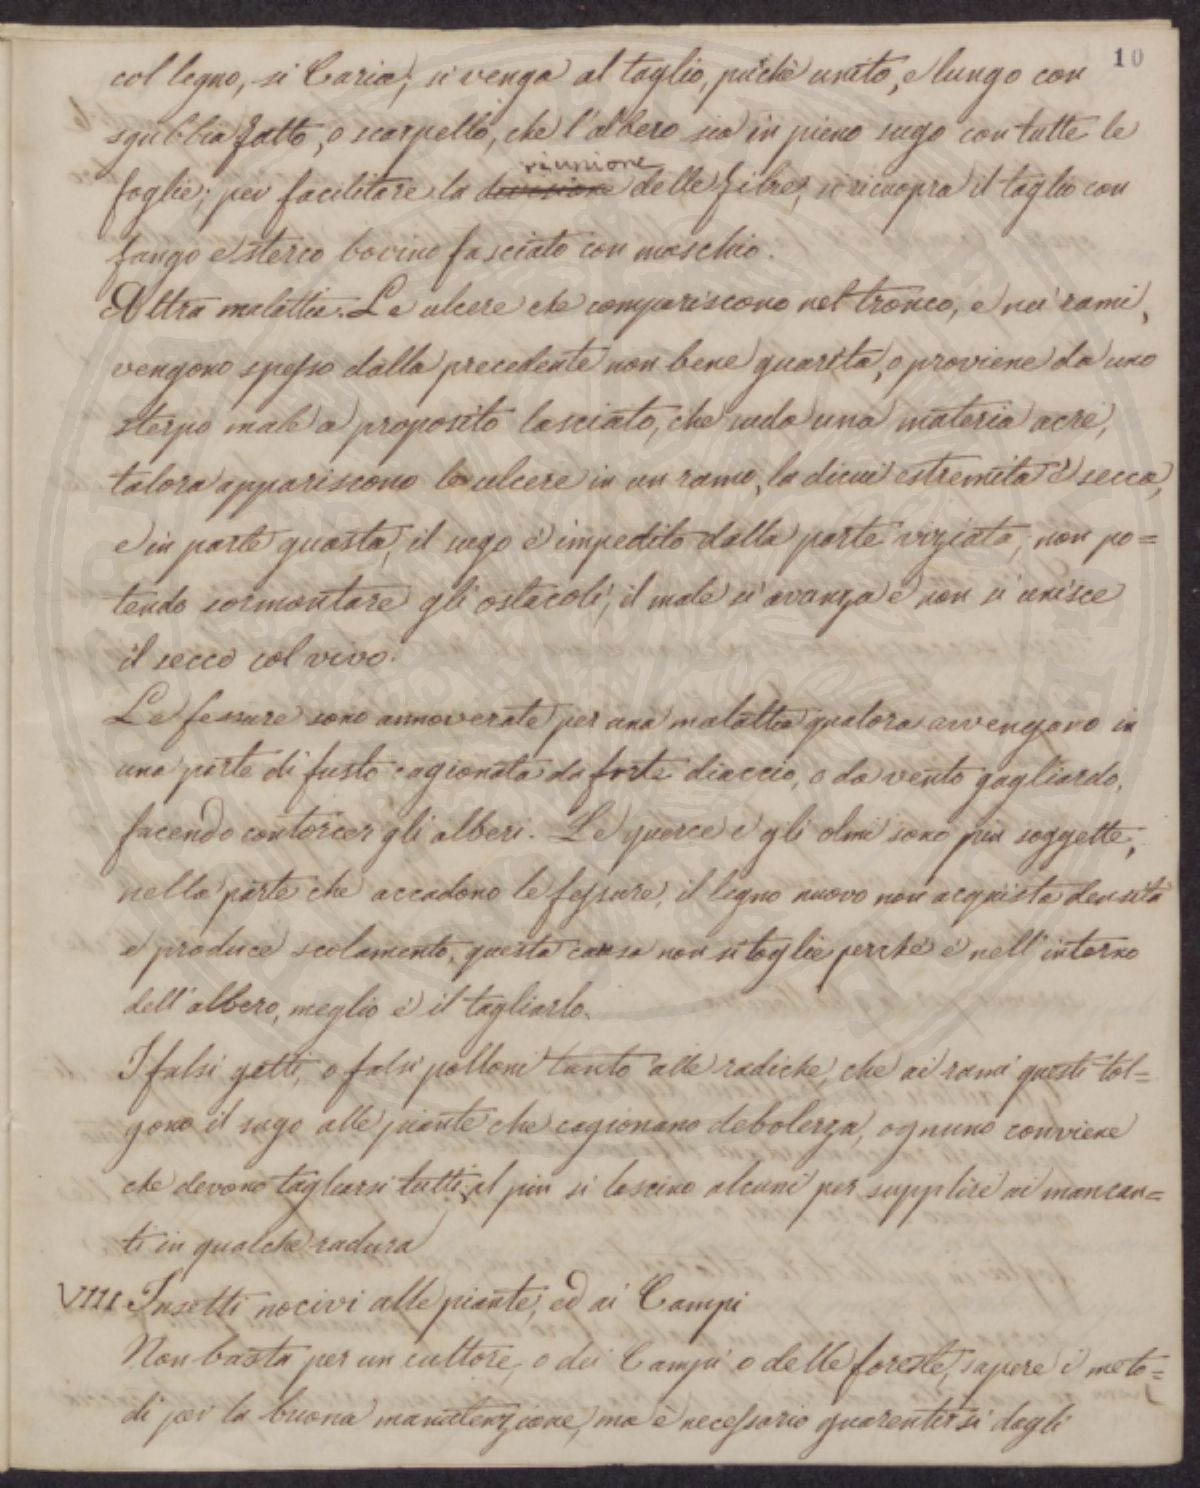 10
col legno, si Caria; si venga al taglio, piuchè unito, e lungo con
sgubbia fatto, o scarpello, che l'albero sia in pieno sugo con tutte le
foglie; per facilitare la divisione riunione delle fibre, si ricuopra il taglio con
fango e sterco bovino fasciato con maschio.
Altra malattia. Le ulcere che compariscono nel tronco, e nei rami,
vengono spesso dalla precedente non bene guarita, o proviene da uno
sterpo male a proposito lasciato, che suda una materia acre,
talora appariscono le ulcere in un ramo, la di cui estremità è secca,
e in parte guasta, il sugo è impedito dalla parte viziata, non po=
tendo sormontare gli ostacoli, il male si avanza e non si unisce
il secco col vivo.
Le fessure sono annoverate per una malattia qualora avvengano in
una parte di fusto cagionata da forte diaccio, o da vento gagliardo,
facendo contorcer gli alberi. Le querce e gli olmi sono più soggette,
nella parte che accadono le fessure, il legno nuovo non acquista densità
e produce scolamento, questa causa non si toglie perchè è nell'intorno
dell'albero, meglio è il tagliarlo.
I falsi getti, o falsi polloni tanto alle radiche, che ai rami questi tol=
gono il sugo alle piante che cagionano debolezza, ognuno conviene
che devono tagliarsi tutti, al più si lascino alcuni per supplire ai mancan=
ti in qualche radura
VIII Insetti nocivi alle piante, ed ai Campi
Non basta per un cultore, o dei Campi o delle foreste, sapere i meto=
di per la buona manutenzione, ma è necessario guarentirsi dagli